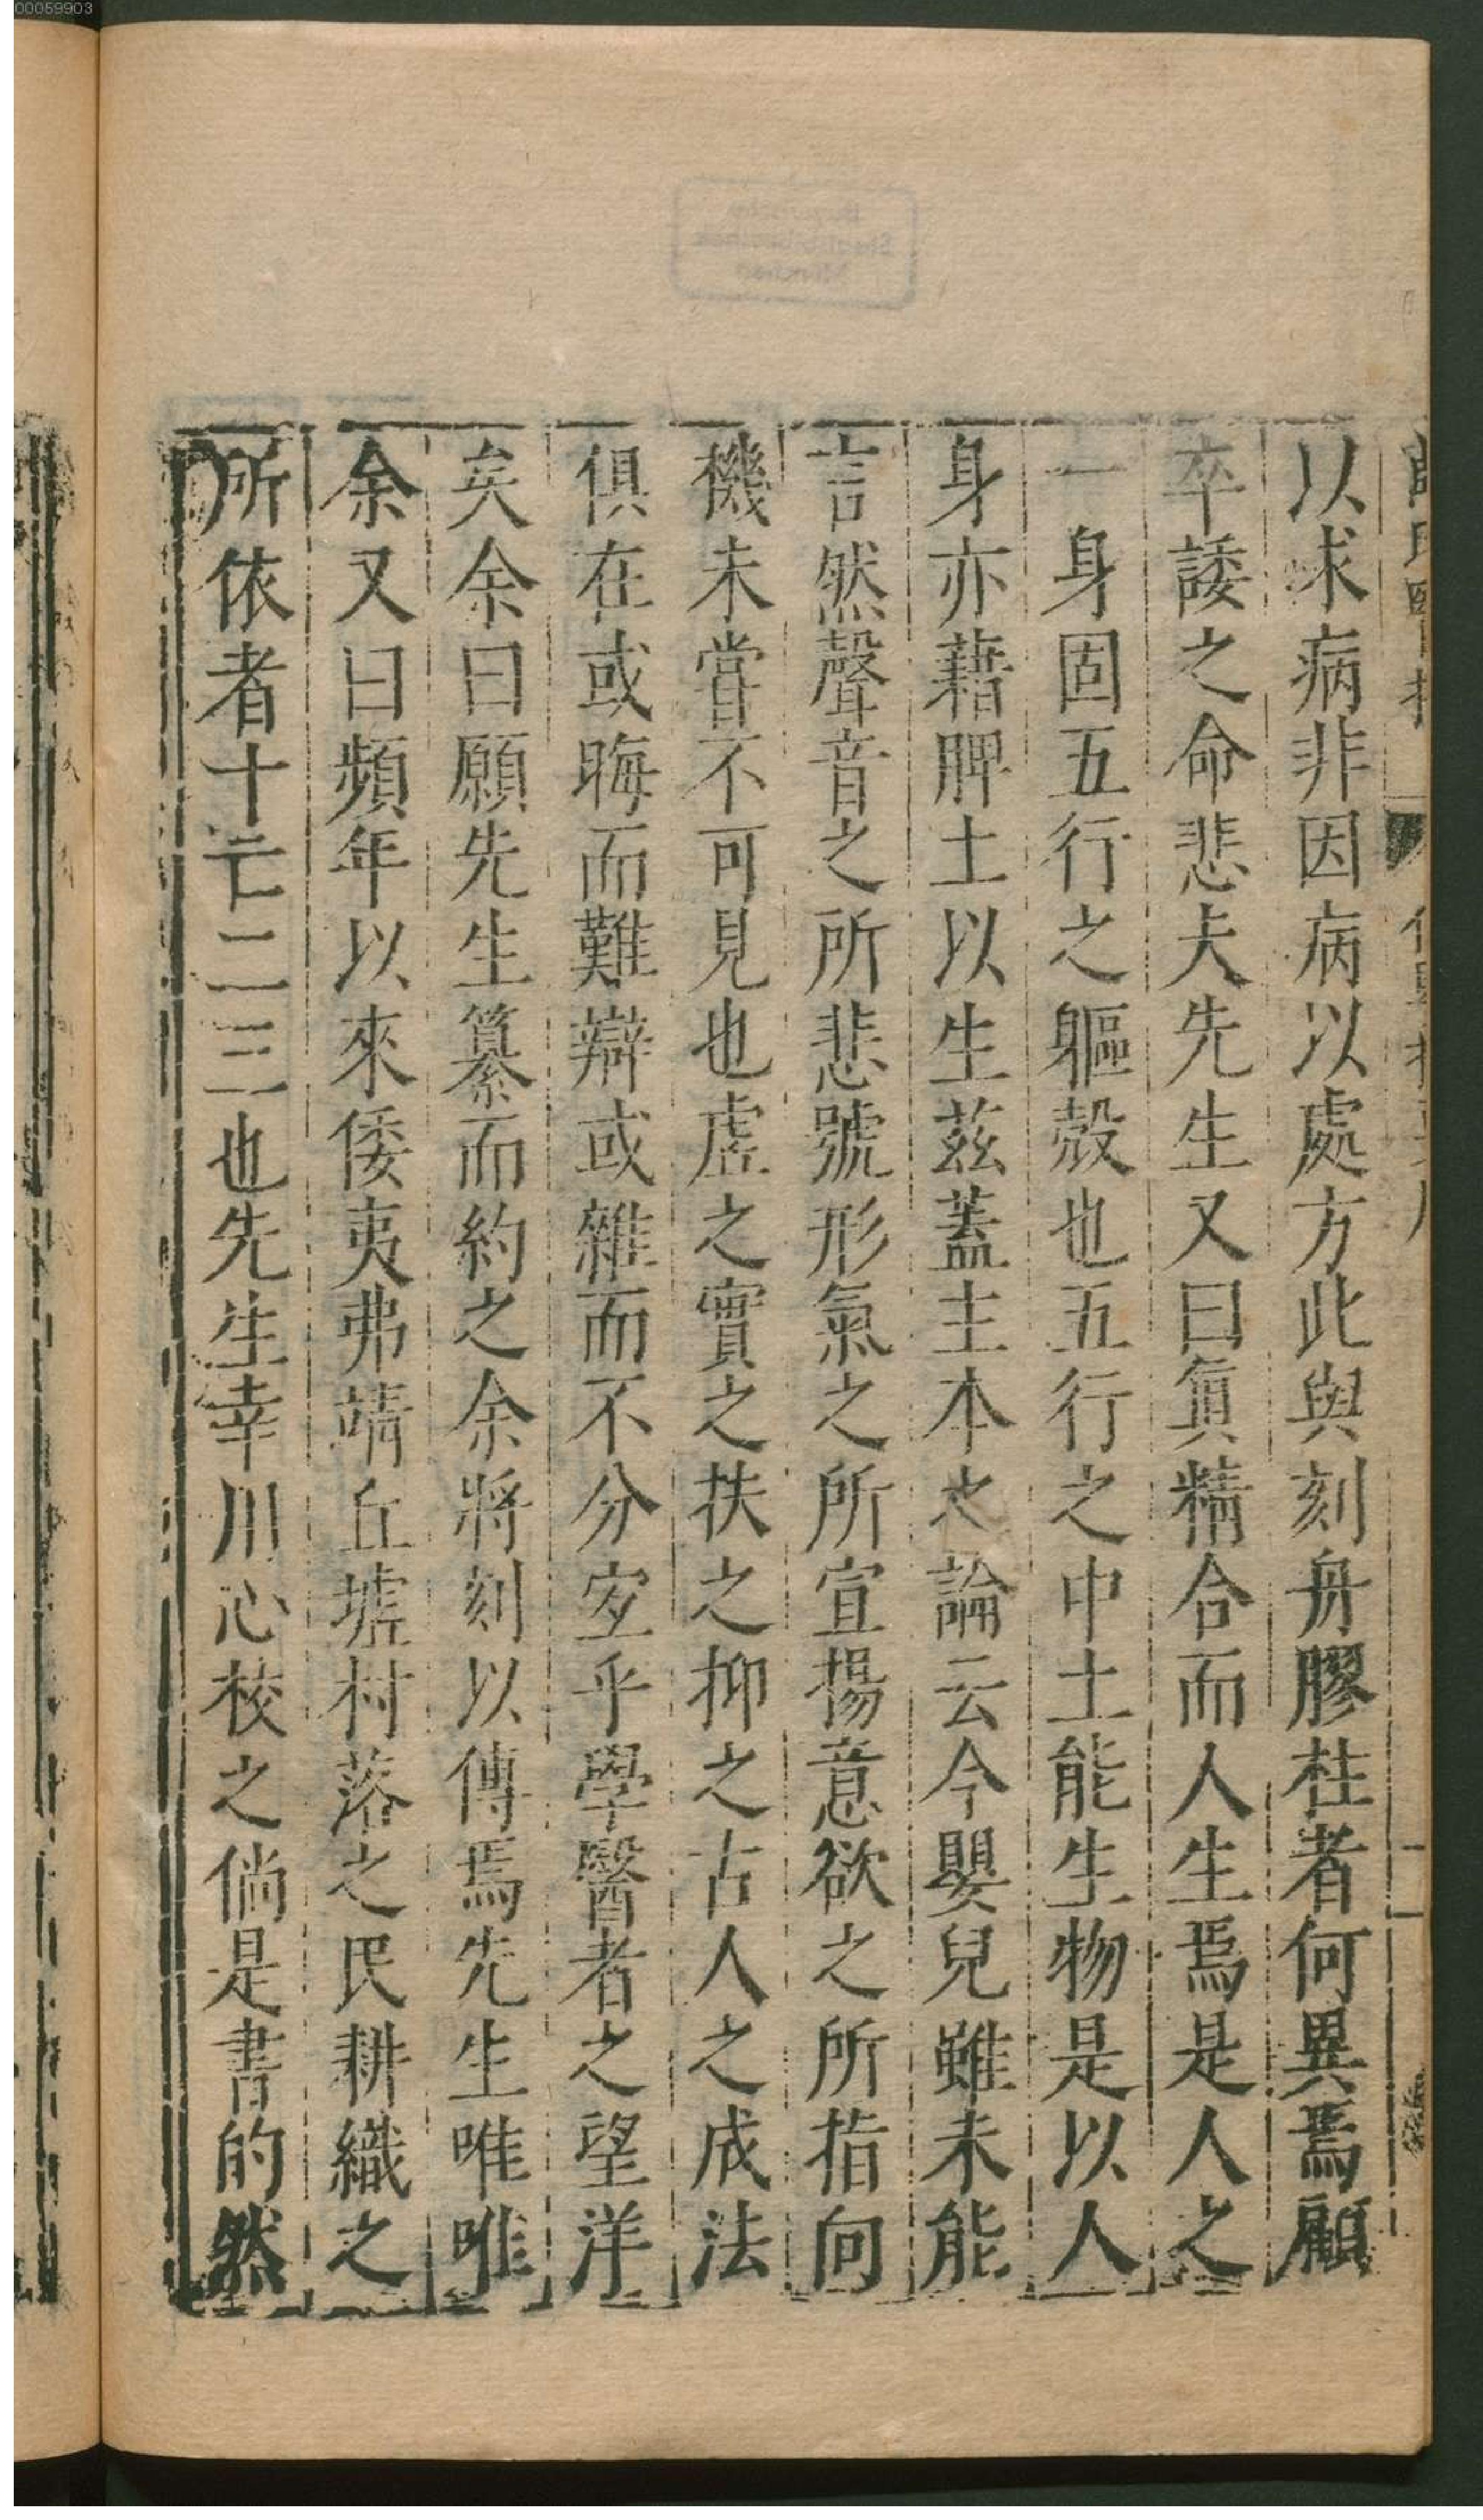 00059903
以求病非因病以處方此與刻舟膠柱者何異焉顧
卒諉之命悲夫先生又曰眞精合而人生焉是人之
一身固五行之軀殻也五行之中土能生物是以人
身亦藉脾土以生兹蓋主本之論云今嬰兒雖未能
言然聲音之所悲號形氣之所宣揚意欲之所指向
機未嘗不可見也虗之實之扶之抑之古人之成法
俱在或晦而難辯或雜而不分宐乎學醫者之望洋
矣余曰願先生纂而約之余將刻以傳焉先生唯唯
余又曰頻年以來倭夷弗靖丘墟村落之民耕織之
所依者十亡二三也先生幸川心校之倘是書的然